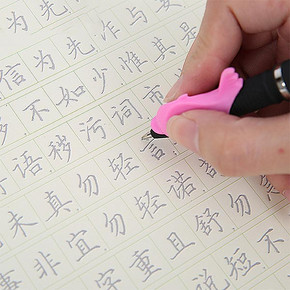 为先
信为先 与
不如少惟其是
语秽污词市
未真勿轻言
事非宜勿轻诺
字重且舒勿急
说短不